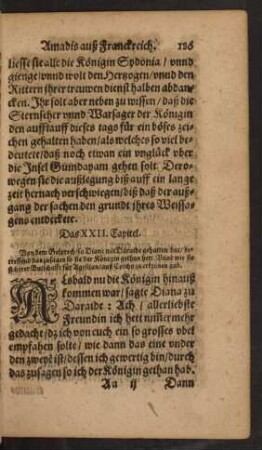 Amadis auß Franckreich. 186
liesse sie alle die Königin Sydonia / vnnd
gienge / vnnd wolt den Hertzogen / vnnd den
Rittern ihrer trewen dienst halben abdan-
cken. Ihr solt aber neben zu wissen / daß die
Sternseher vnnd Warsager der Königin
den aufflauff dieses tags für ein böses zei-
chen gehalten haben / als welches so viel be-
deutete / daß noch etwan ein vnglück vber
die Insel Gundayam gehen solt. Dero-
wegen sie die außlegung biß auff ein lange
zeit hernach verschwiegen / biß daß der auß-
gang der sachen den grundt ihres Weissa-
gens entdeckete.
Das XXII. Capitel.
Von dem Gesprech so Diana mit Daraide gehalten hat / be-
treffend das zusagen so sie der Königin gethan
ALsbald nu die Königin hinauß
kommen war / sagte Diana zu
Daraide: Ach / allerliebste
Freundin ich hett nimmer mehr
gedacht / dz ich von euch ein so grosses vbel
empfahen solte / wie dann das eine vnder
den zweyē ist / dessen ich gewertig bin / durch
das zusagen so ich der Königin gethan hab.
Aa ij Dann